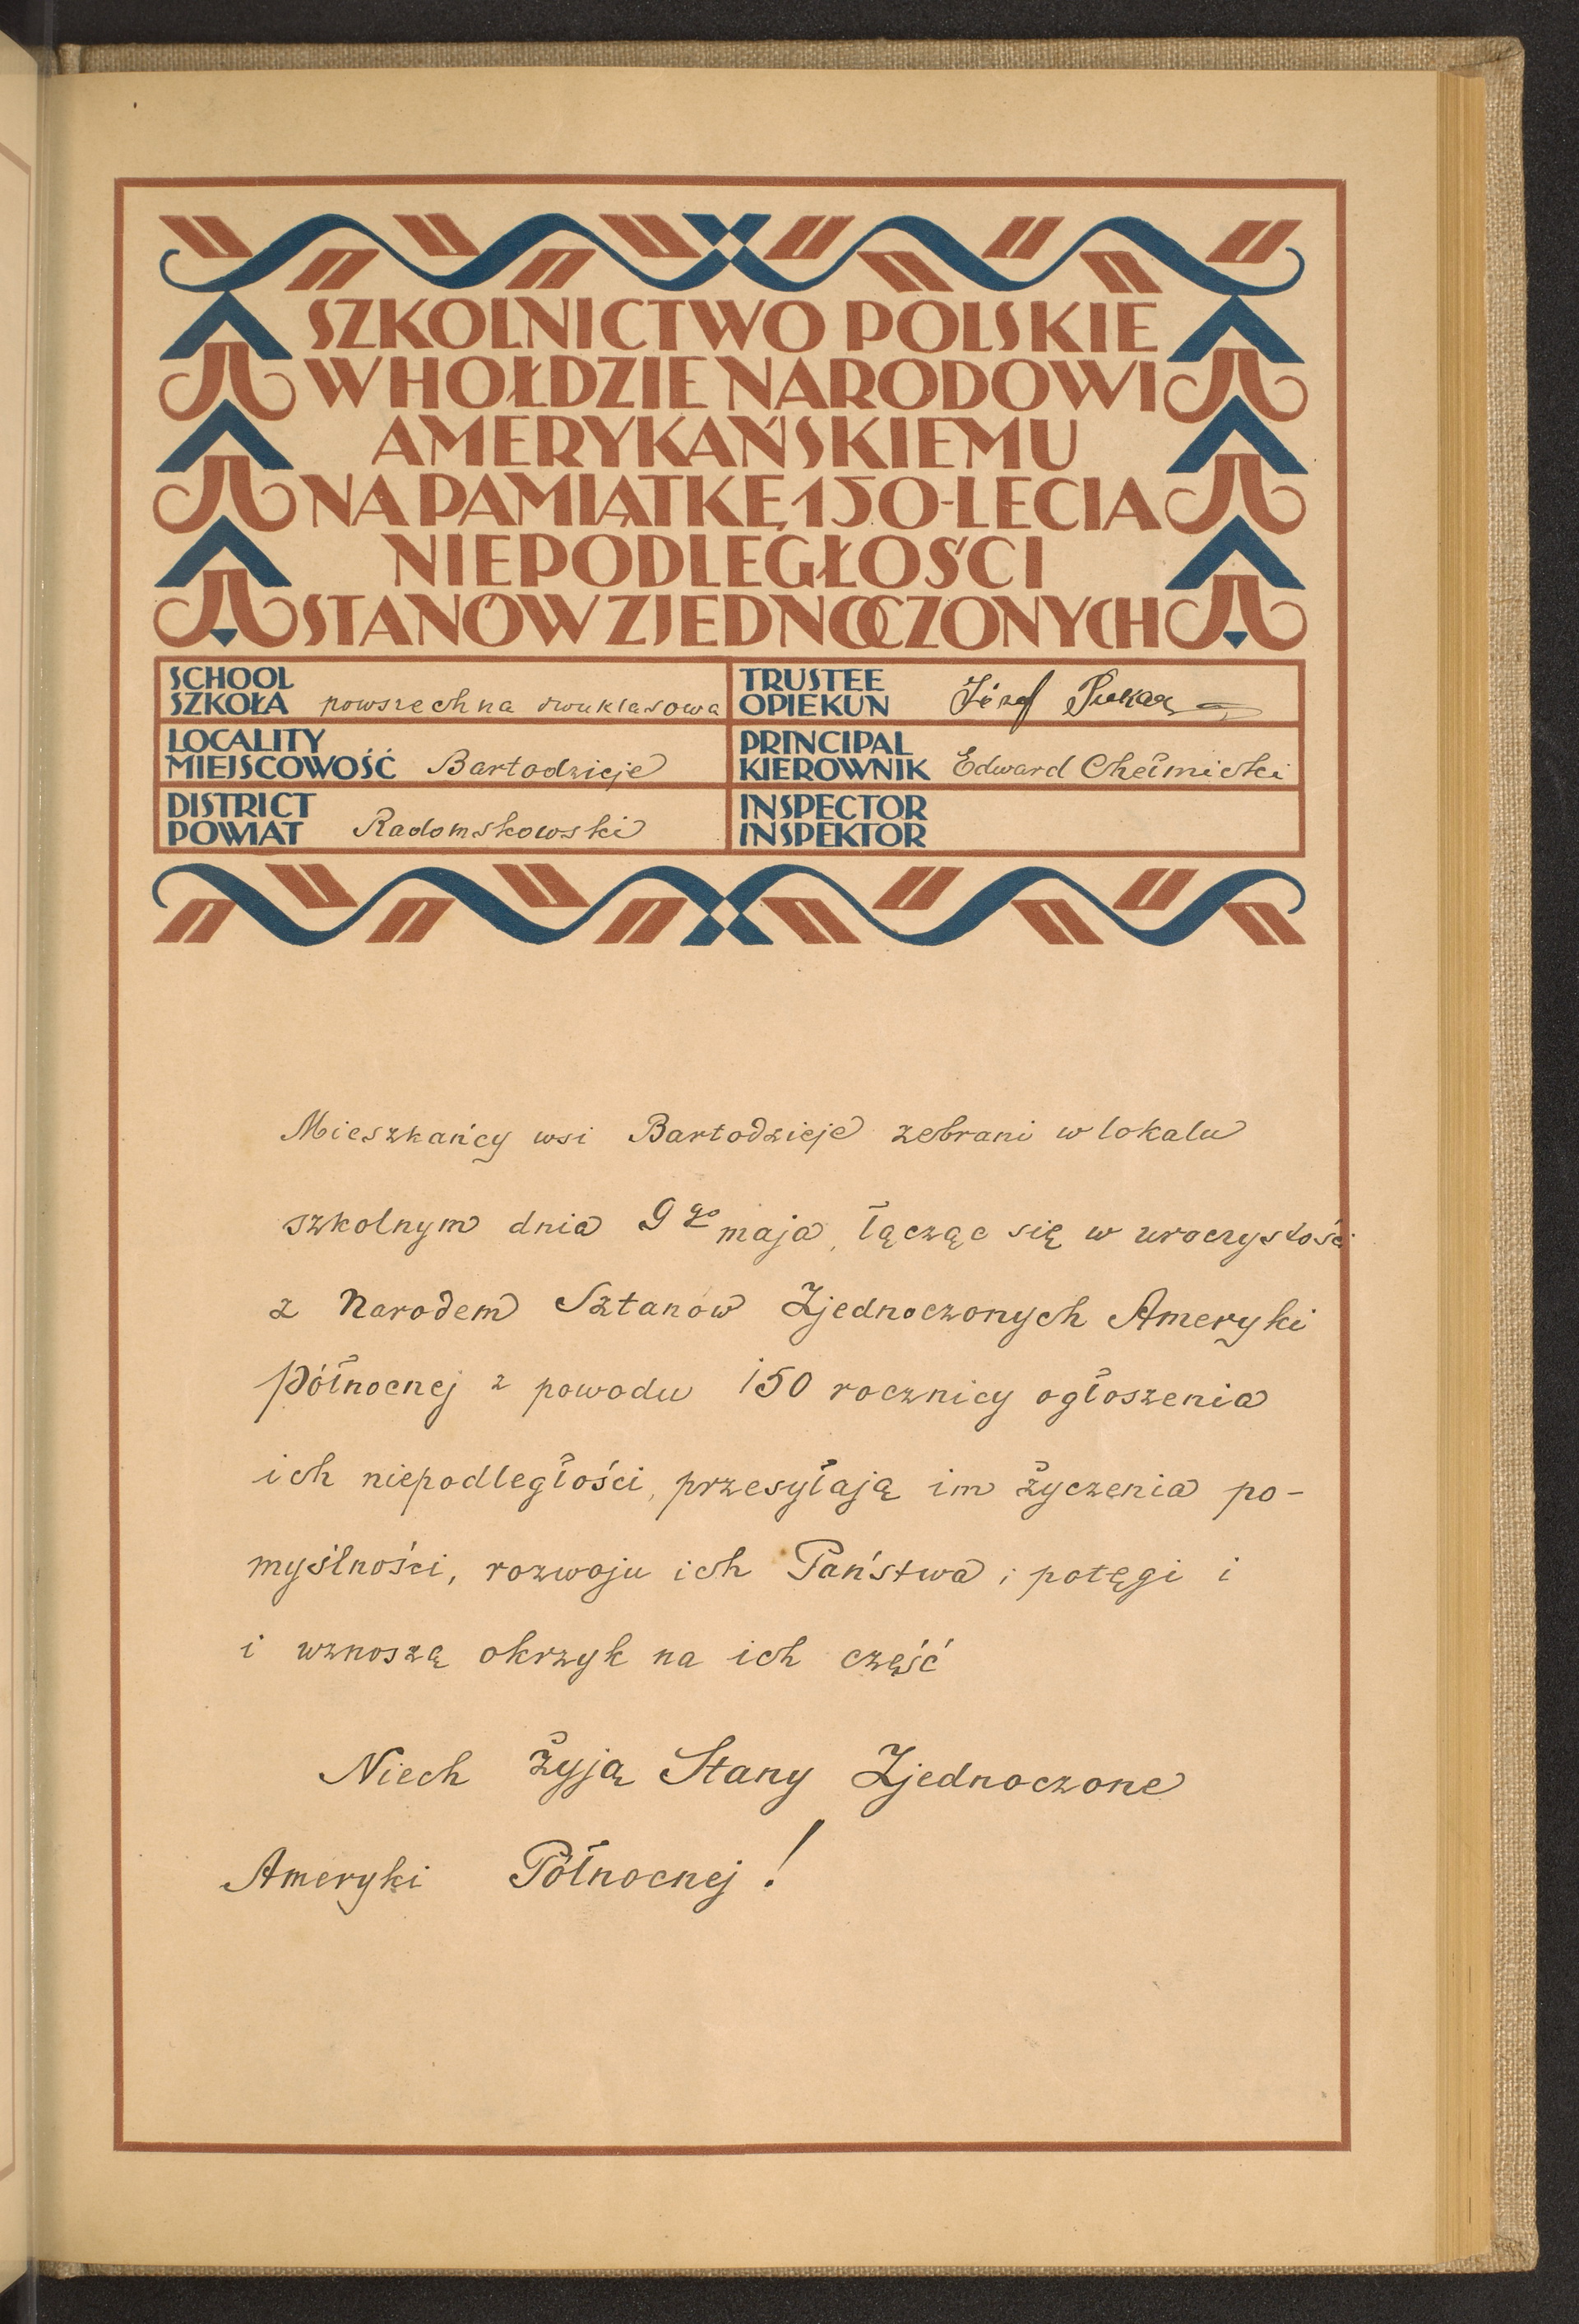 SZKOLNICTWO POLSKIE
W HOŁDZIE NARODOWI
AMERYKAŃSKIEMU
NA PAMIĄTKĘ 150-LECIA
NIEPODLEGŁOŚCI
STANÓW ZJEDNOCZONYCH
SCHOOL
SZKOŁA powszechna dwuklasowa
TRUSTEE
OPIEKUN Józef
LOCALITY
MIEJSCOWOŚĆ Bartodzieje
PRINCIPAL
KIEROWNIK Edward Chełmicki
DISTRICT
POWIAT Radomskowski
INSPECTOR
INSPEKTOR
Mieszkańcy wsi Bartodzieje zebrani w lokalu
szkolnym dnia 9go maja, łącząc się w uroczystości
z Narodem Sztanów Zjednoczonych Ameryki
Północnej z powodu 150 rocznicy ogłoszenia
ich niepodległości, przesyłają im życzenia po-
myślności, rozwoju ich Państwa i potęgi i
i wznoszą okrzyk na ich cześć
Niech żyją Stany Zjednoczone
Ameryki Północnej!